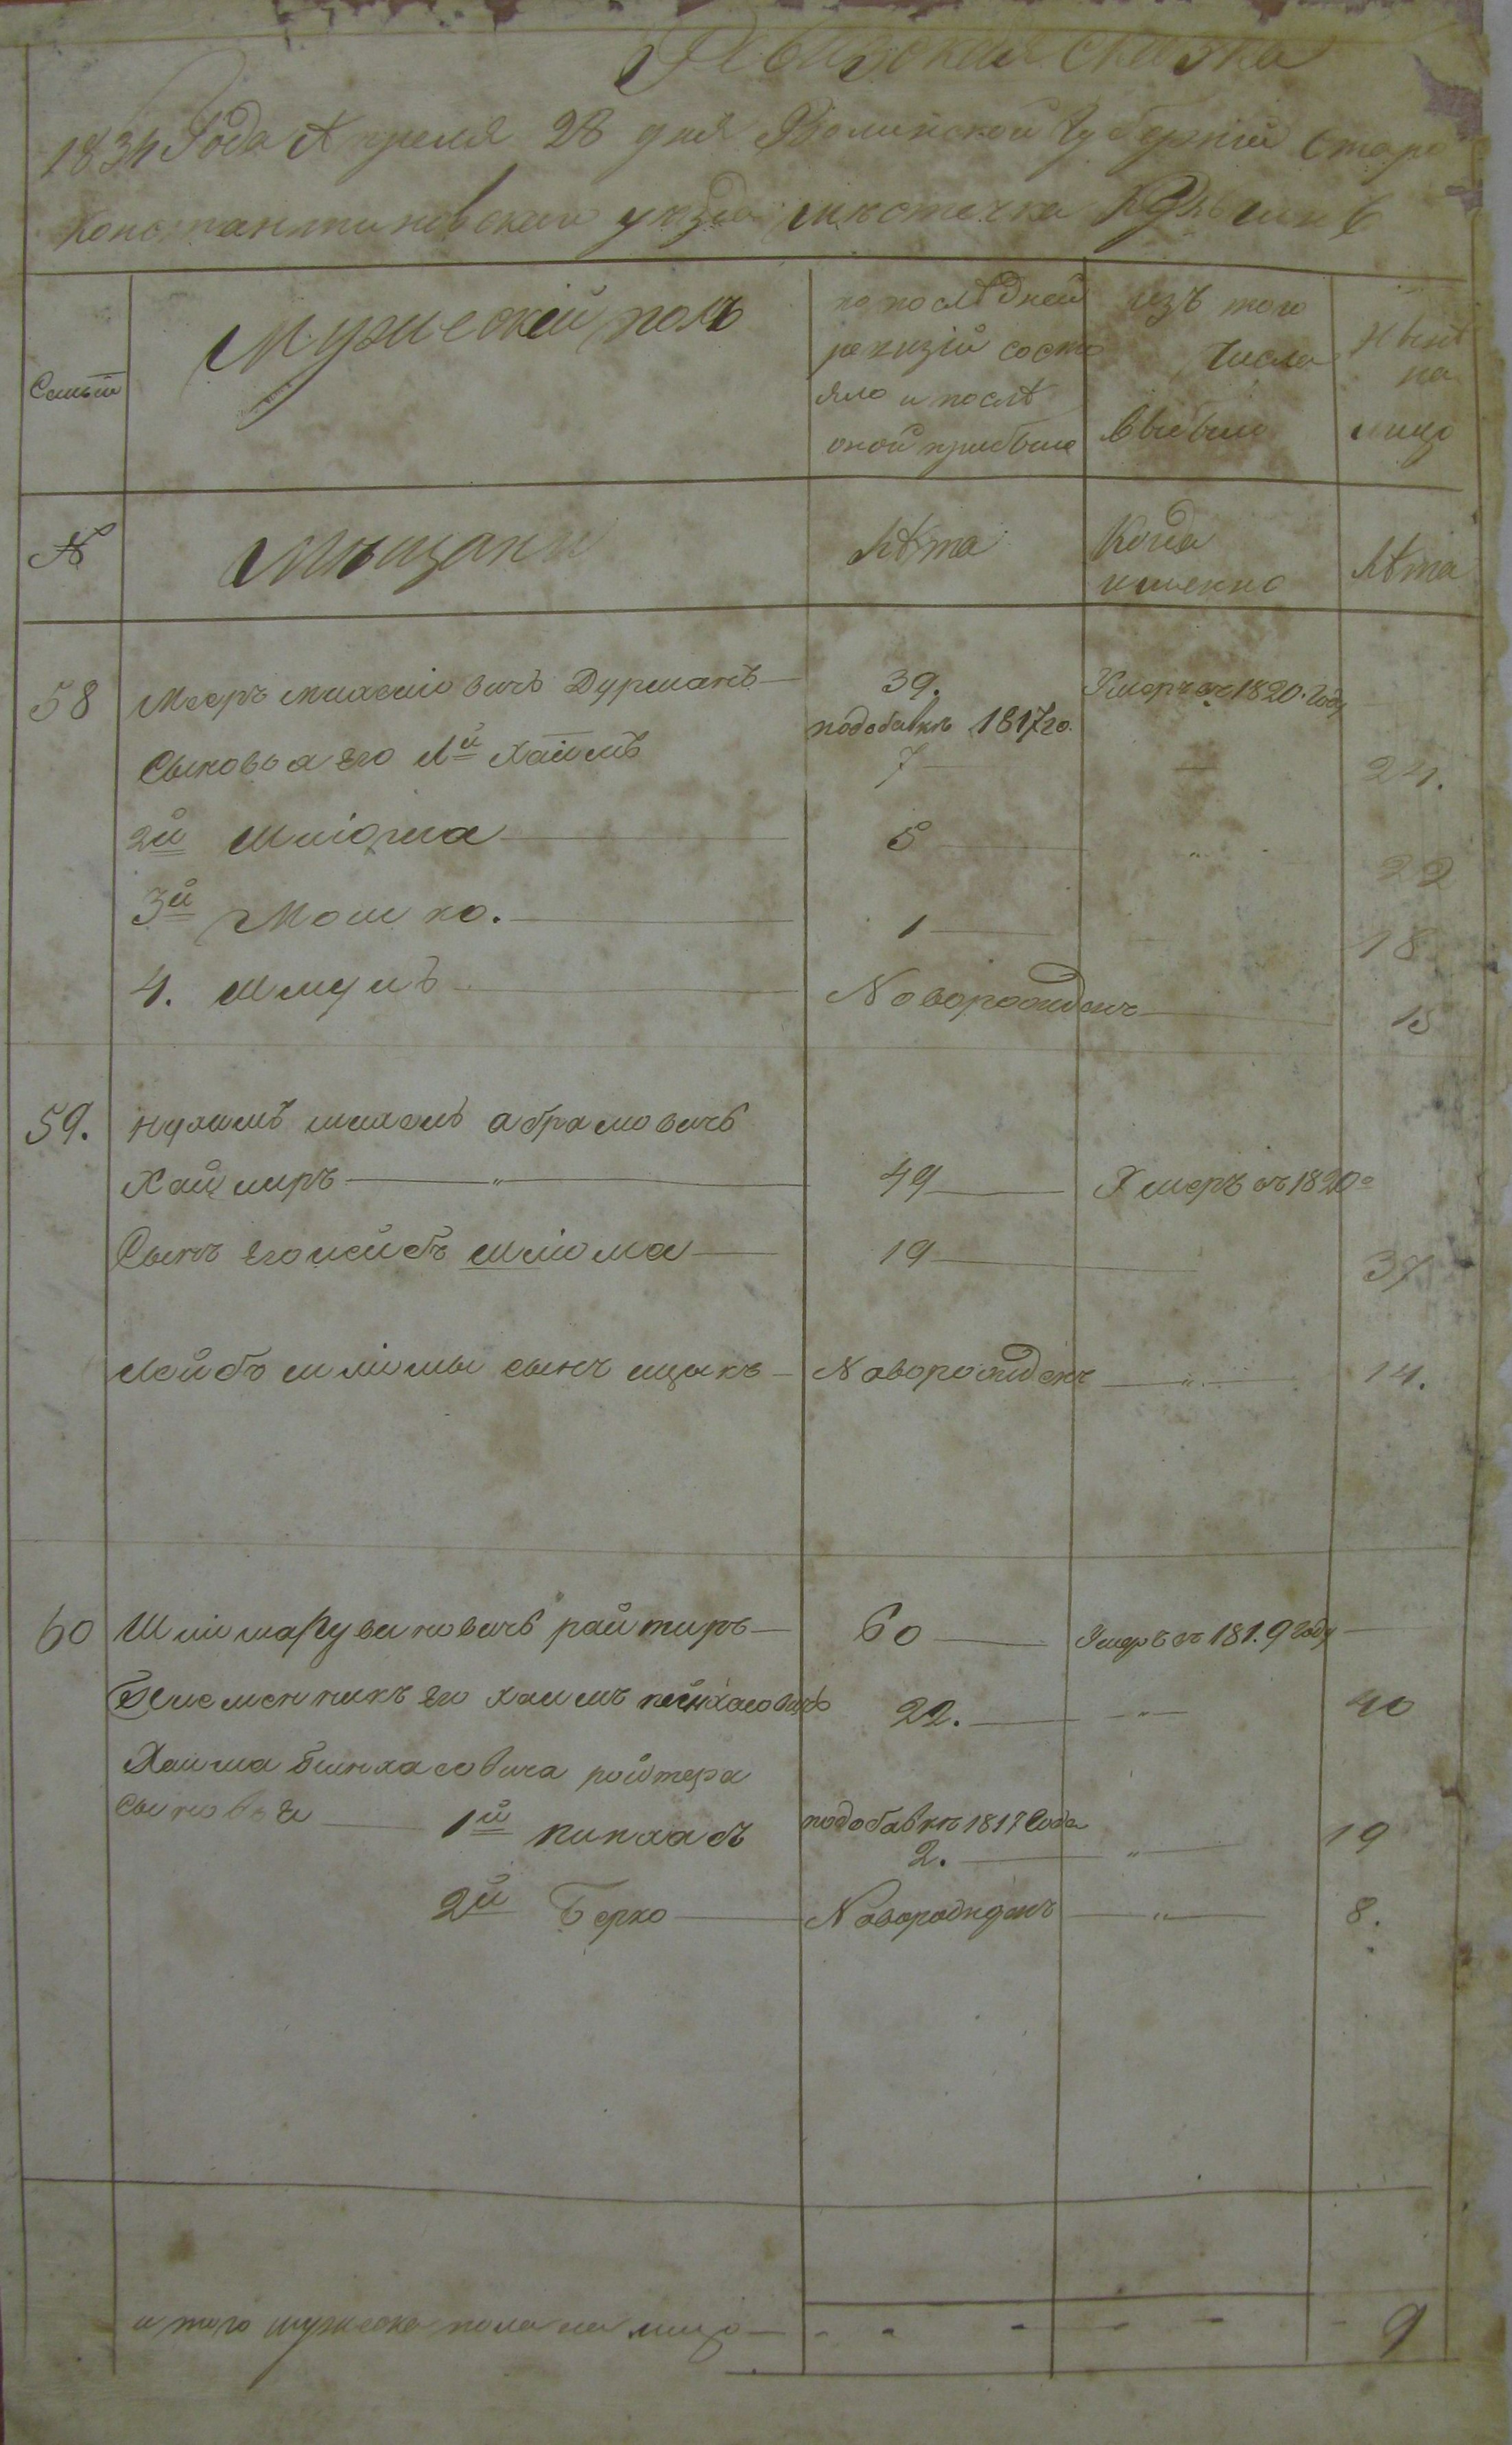 Ревизская сказка
1834 Года Апреля 28 дня Волынской Губернiи Старо
константиновскаго уезда местечка
Семьи
Мужеский полъ
по последней ревизiи состояло и после оной прибыло
изъ того числа выбыло
ныне на лицо
№
Мещани
лѣта
Когда именно
лѣта
58 Меер Дурманъ 39. Умеръ въ 1820. году
Сыновья его 1й Хаимъ подобавкъ 1817го. 7 24.
2й Шлiома 5 22
3й Мошко. 1 18
4. Шмуль Новорожденъ 15
59. Нухимъ абрамовичъ
49 Умеръ въ 1820
Сынъ его лейбъ шлiома 19 37
Лейбъ шлiомы сынъ ицыкъ Новорожденъ 14.
60 Шлiома Рувиновичъ райтиръ 60 Умеръ въ 1819 году
Племенникъ его хаимъ 22. 40
Хаима Пинхасовича ройтера
сыновья 1й пинхасъ подобавкъ 1817 Года 2. 19
2й Берко Новорожденъ 8.
итого мужеска пола на лицо 9